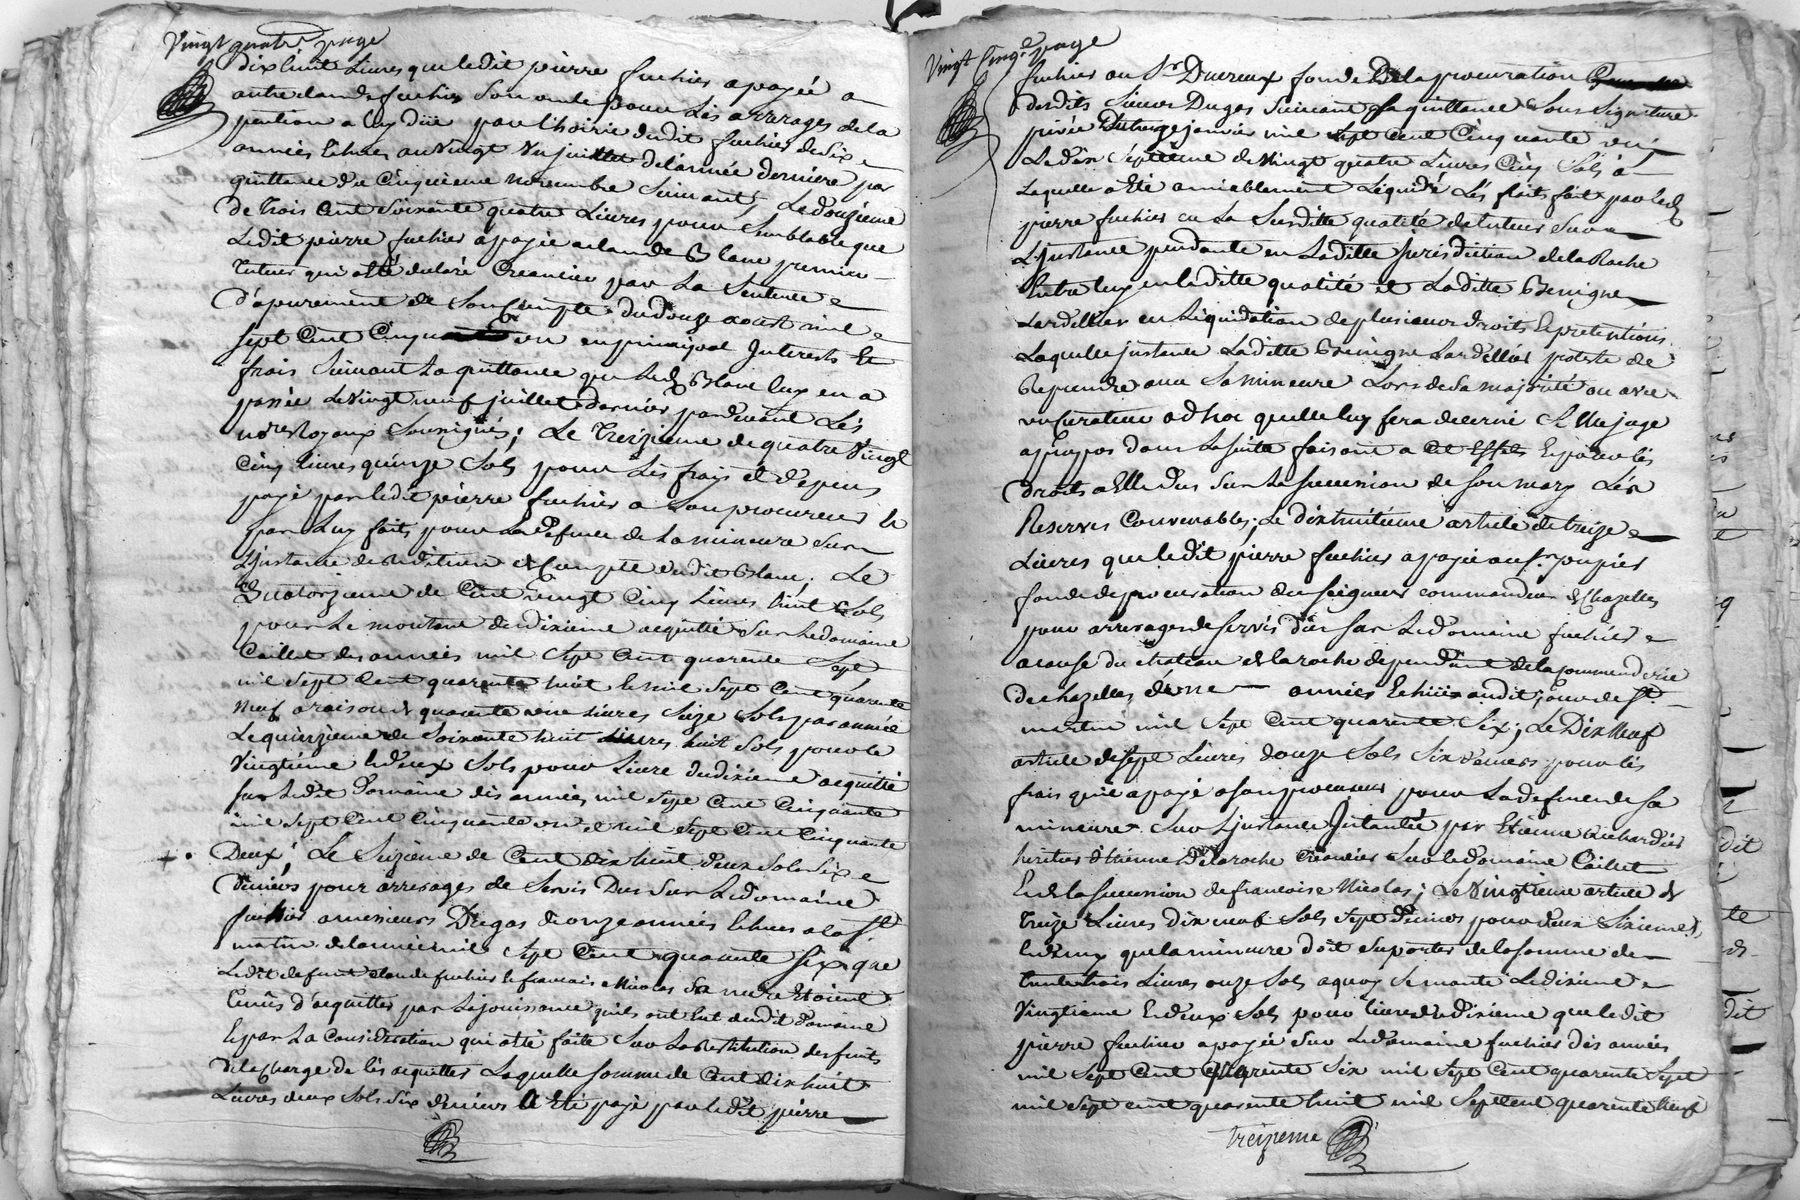 Vingt quatre page
dixhuit Livres que ledit pierre fuchier a payé a
autre claude fuchier son oncle pour Les arrerages de la
pention a luy düe par l'hoirie dudit fuchier de six
années Echues au vingt un juillet de l'année derniere par
quittance du Cinquieme novembre suivant, Le douzieme
de trois Cent soixante quatre Livres pour semblable que
Ledit pierre fuchier a payé a claude Blanc premier
tuteur qui a Eté declaré Creancier par La sentence
d'apurement de son Compte du douze aoust mil
sept Cent Cinquante un en principal Interests Et
frais suivant La quittance que Led. Blanc luy en a
passée Le vingt neuf juillet dernier pardevant Les
nores Royaux soussignés; Le treizieme de quatre vingt
Cinq livres quinze sols pour Les frais et depens
payé par ledit pierre fuchier a son procureur Et
par Luy faits pour La defence de La mineure sur
L'jnstance de Reddition de Compte dudit Blanc; Le
Quatorzieme de Cent vingt Cinq Livres huit sols
pour Le montant du dixieme acquitté sur Le domaine
Caillet des années mil sept Cent quarente sept
mil sept Cent quarente huit Et mil sept Cent quarente
neuf a raison de quarente une livres seize sols par année
Le quinzieme de soixante huit Livres huit sols pour le
vingtieme Et deux sols pour Livre du dixieme acquitté
sur Ledit domaine des années mil sept Cent Cinquante
mil sept Cent Cinquante un Et mil sept Cent Cinquante
Deux; Le seizieme de Cent dix huit deux sols six
deniers pour arrerages de servis Dus sur Le domaine
fuchier a messieurs Dugas de onze années Echues a la St.
martin de l'année mil sept Cent quarente six que
Ledit defunt claude fuchier Et francoise Nicolas sa mere Etoient
tenus d'acquitter par La jouissance qu'ils ont Eut dudit domaine
Et par La Consideration qui a Eté faite sur La Restitution des fruits
de la Charge de les acquitter Laquelle somme de Cent dix huit
Livres deux sols six deniers a Eté payé par ledit pierre
Vingt Cinqe page
fuchier au Sr Ducreux fondé De la procuration
desdits sieurs Dugas suivant sa quittance sous signature
privée Du treize janvier mil sept Cent Cinquante un
Le dix septieme de vingt quatre Livres Cinq sols a
Laquelle a Eté amiablement Liquidé Les frais fait par led.
pierre fuchier en La susditte qualité de tuteur sur
L'jnstance pendante en Laditte jurisdiction de la Roche
Entre luy en laditte qualité et Laditte Benigne
Lardellier en Liquidation de plusieurs droits Et pretentions
Laquelle jnstance Laditte Benigne Lardellier proteste de
Reprendre avec sa mineure Lors de sa majorité ou avec
un Curateur ad hoc quelle luy fera decerné sil Elle juge
apropos dans La suitte faisant a Cet Effet Et pour les
droits a Elle dus sur La succession de son mary Les
Reserves Convenables; Le dixhuitieme article de treize
Livres que ledit pierre fuchier a payé au sr. poupier
fondé de procuration du seigneur commandeur de Chazelles
pour arrerages de servis dus sur Le domaine fuchier
a cause du chateau de la roche dependant de la commanderie
de chazelles, de neuf années Echües audit jour de St.
martin mil sept Cent quarente six; Le Dix Neuf
article de sept Livres douze sols six deniers pour les
frais qu'il a payé a son procureur pour La defence de sa
mineure sur L'jnstance Jntantée par Etienne Richardier
heritier d'Etienne Delaroche creancier sur le domaine Caillet
Et de la succession de francoise Nicolas; Le vingtieme article de
treize Livres dix neuf sols sept deniers pour deux sixiemes
Et demy que la mineure doit suporter de la somme de
trente trois Livres onze sols a quoy se monte Le dixieme
vingtieme Et deux sols pour Livre du dixieme que ledit
pierre fuchier a payé sur Le domaine fuchier des années
mil sept Cent quarente six mil sept Cent quarente sept
mil sept cent quarente huit mil sept Cent quarente Neuf
treizieme